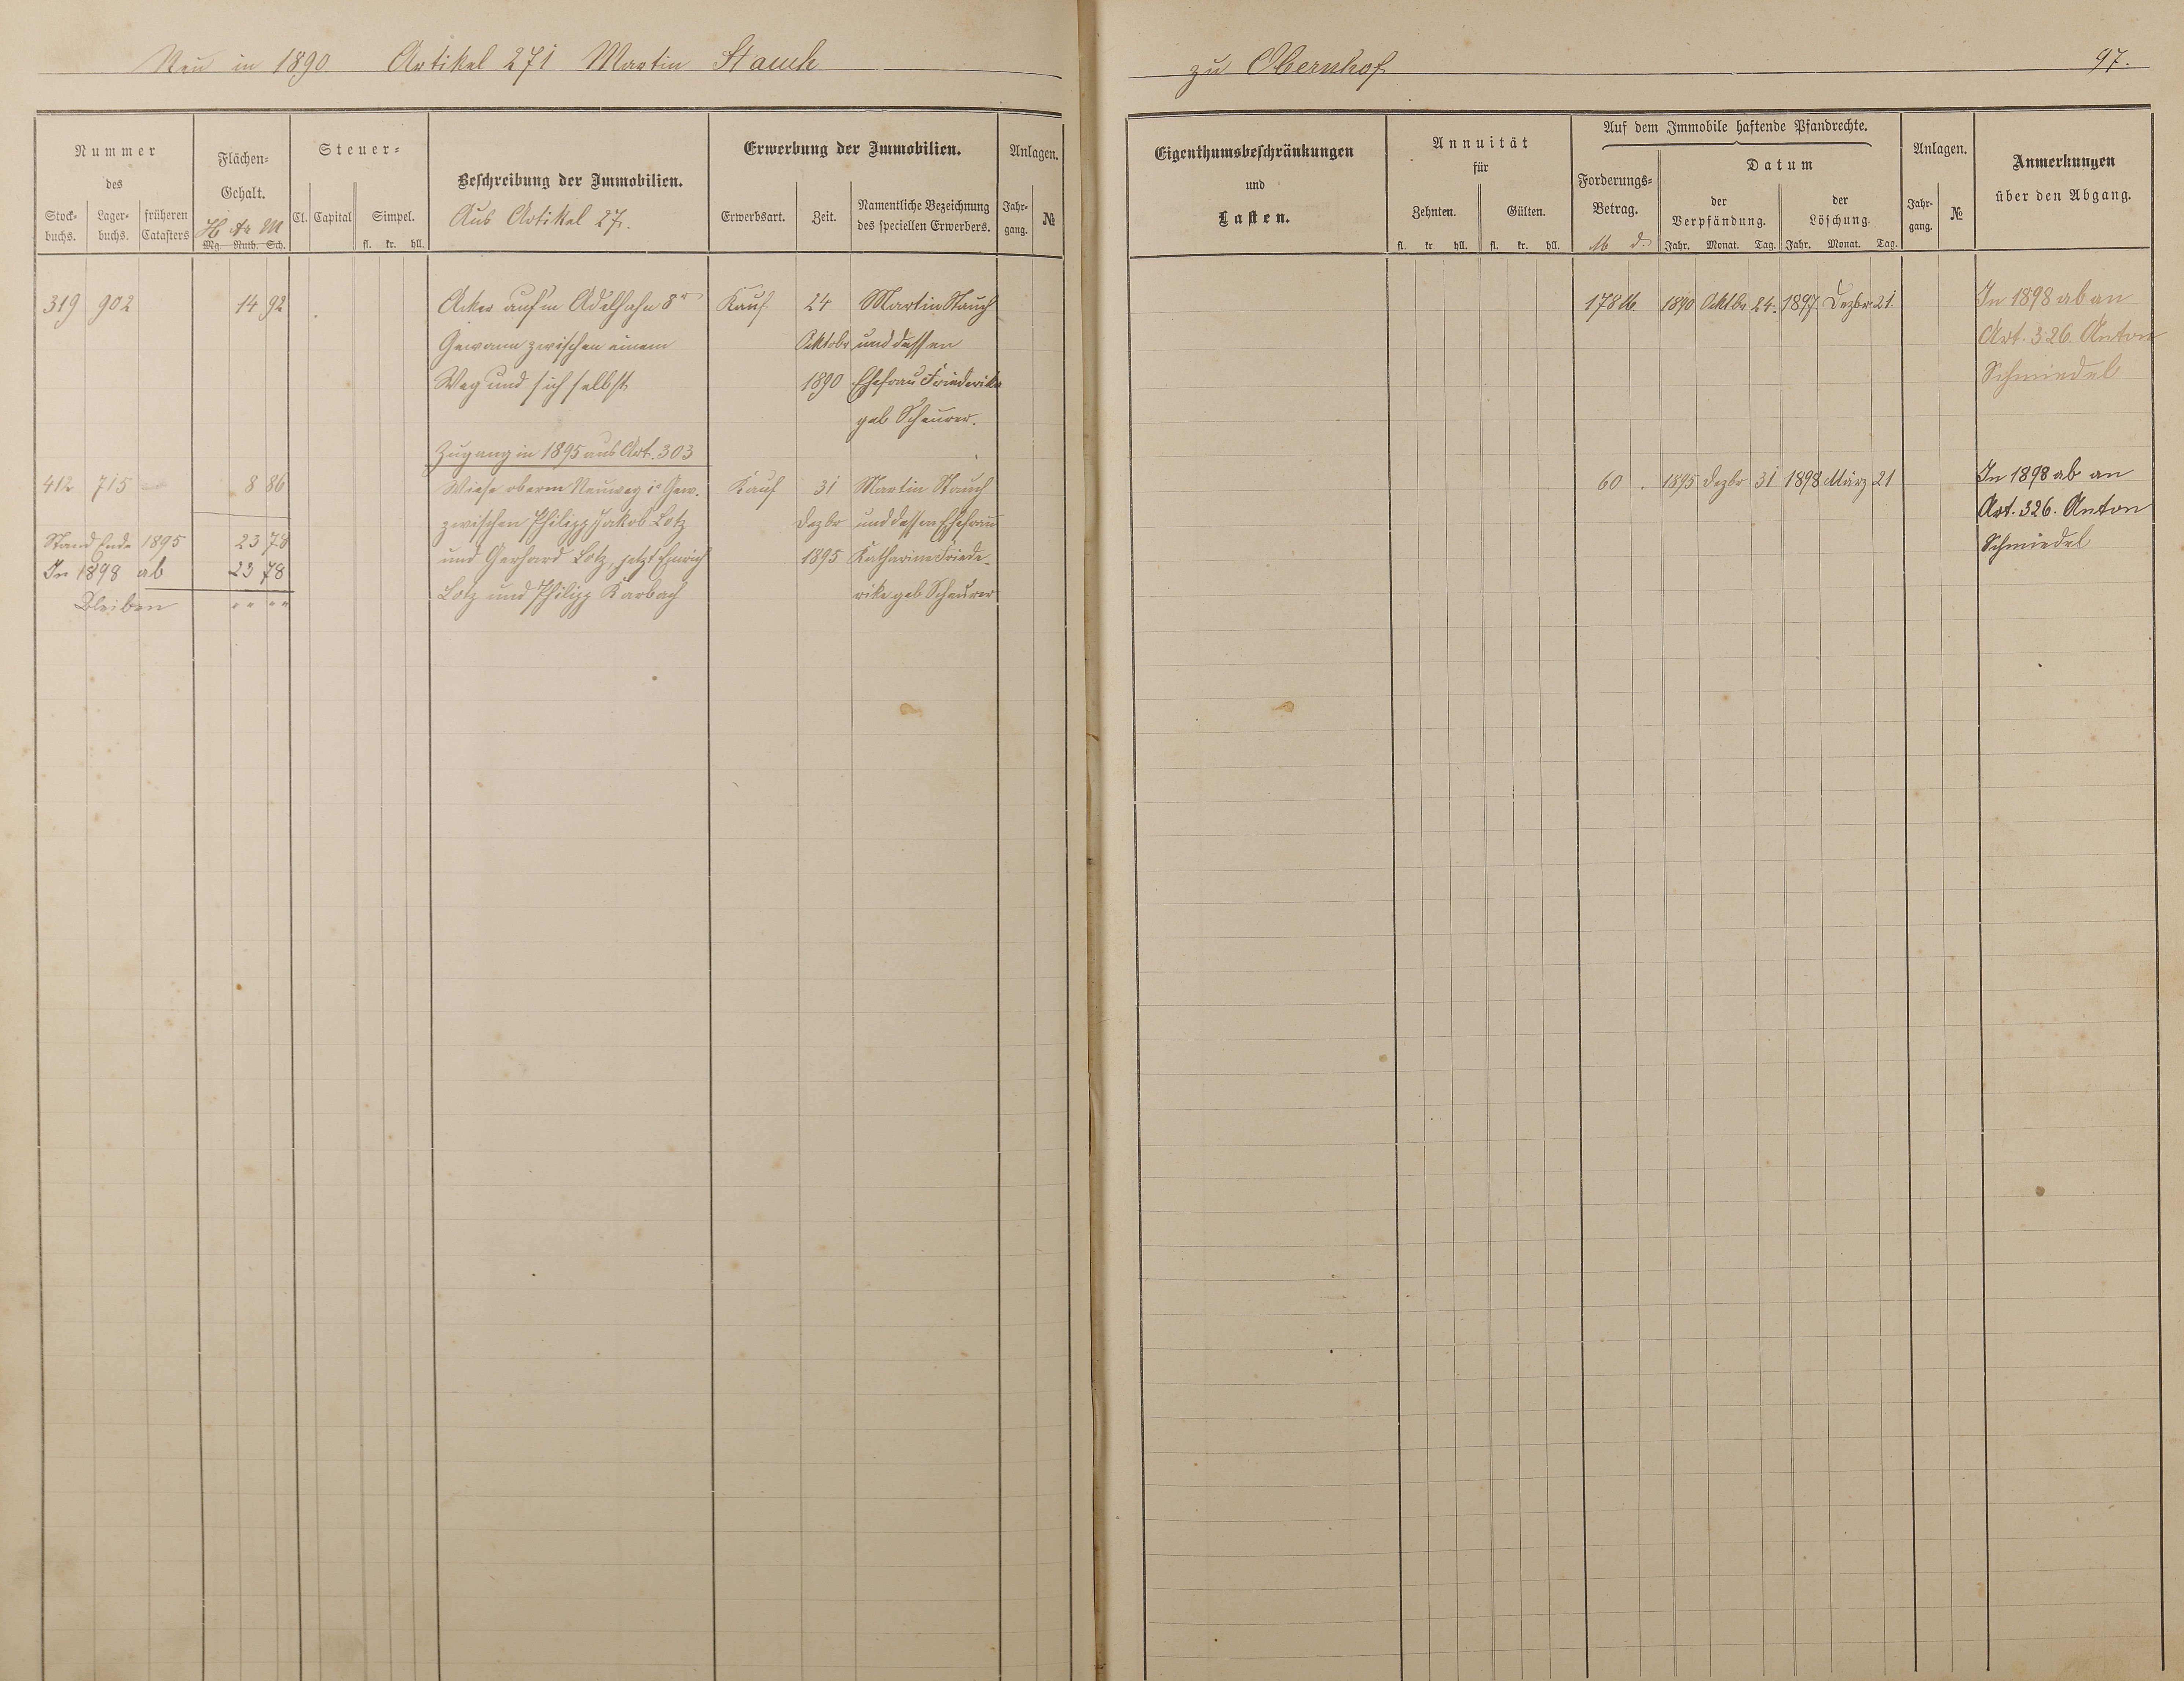 Neu in 1890 Artikel 271 Martin Stauch
zu Obernhof
97.
Nummer
des
Stock-
buchs.
Lager-
buchs.
früheren
Catasters
Flächen-
Gehalt.
H Ar M
Mg. Ruth. Sch.
Steuer-
Cl. Capital Simpel.
fl. kr. hll.
Beschreibung der Immobilien.
Aus Artikel 27.
Erwerbung der Immobilien.
Erwerbsart. Zeit.
Namentliche Bezeichnung
des speciellen Erwerbers.
Anlagen.
Jahr-
gang.
№
Eigenthumsbeschränkungen
und
Lasten.
Annuität
für
Zehnten. Gülten.
fl. kr. hll. fl. kr. hll.
Auf dem Immobile haftende Pfandrechte.
Forderungs-
Betrag.
M d.
Datum
der
Verpfändung.
der
Löschung.
Jahr. Monat. Tag. Jahr. Monat. Tag.
Anlagen.
Jahr-
gang.
№
Anmerkungen
über den Abgang.
319 902 14 92 Acker auf'm Adelhahn 8r Kauf 24 Martin Stauch
Gewann zwischen einem Oktobr und dessen
Weg und sich selbst 1890 Ehefrau Friederike
geb Scheurer.
178 M. 1890 Oktbr 24. 1897 Dezbr 21. In 1898 ab an
Art. 326. Anton
Schmiedel
Zugang in 1895 aus Art. 303
412 715 8 86 Wiese oberm Neuweg 1r Gew. Kauf 31 Martin Stauch
zwischen Philipp Jakob Lotz Dezbr und dessen Ehefrau
Stand Ende 1895 23 78 und Gerhard Lotz, jetzt Emrich 1895 Katharine Friede-
In 1898 ab 23 78 Lotz und Philipp Karbach rike geb Scheurer
Bleiben " " " "
60 . 1895 Dezbr 31 1898 März 21 In 1898 ab an
Art. 326. Anton
Schmiedel